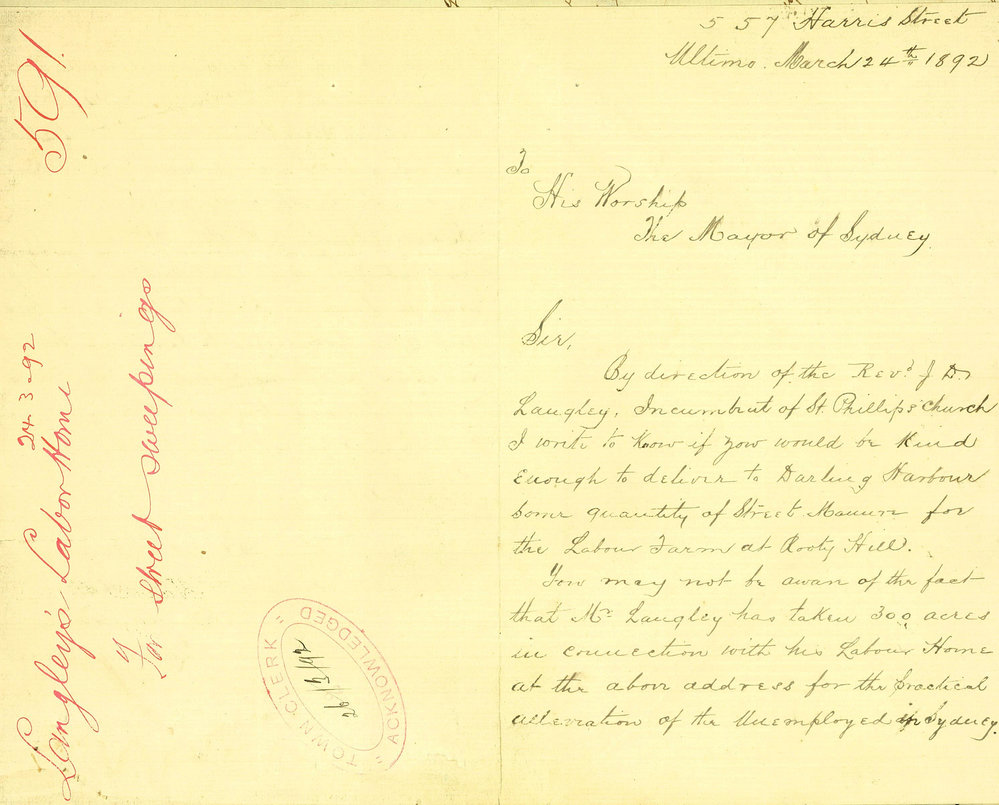 591.
24-3-92
Langley's Labor Home
For street sweepings
"TOWN CLERK"
26/3/92
"ACKNOWLEDGED"
557 Harris Street
Ultimo. March 24th 1892
To
His Worship
The Mayor of Sydney.
Sir,
By direction of the Revd J D.
Langley, Incumbent of St. Phillip's church
I write to know if you would be kind
enough to deliver to Darling Harbour
some quantity of Street Manure for
the Labour Farm at Rooty Hill.
You may not be aware of the fact
that Mr Langley has taken 300 acres
in connection with his Labour Home
at the above address for the practical
alleviation of the Unemployed in Sydney.